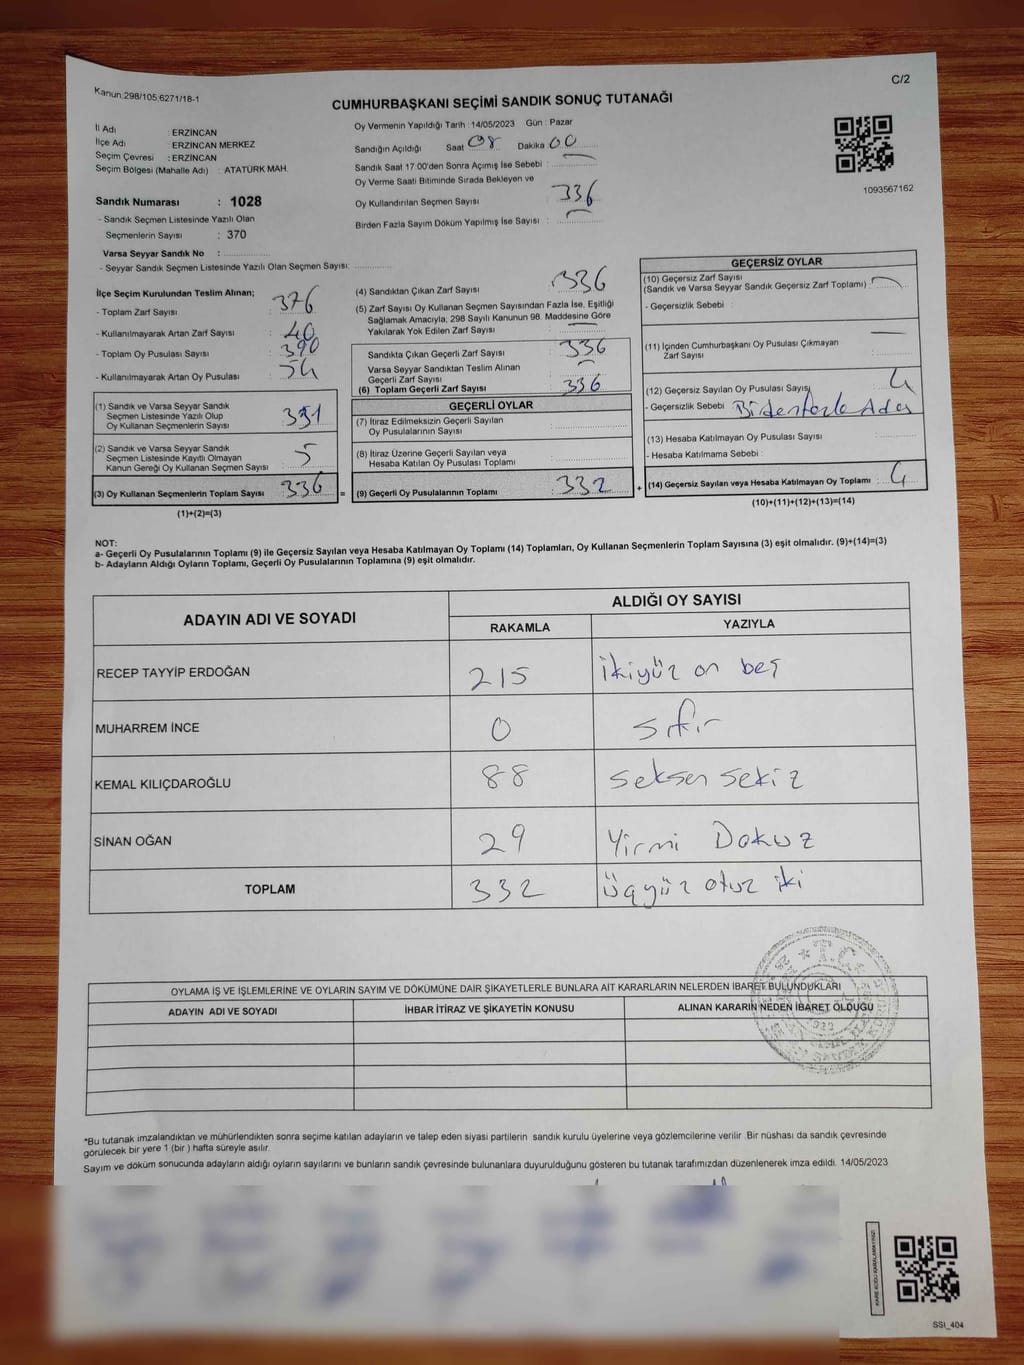 Kanun:298/105;6271/18-1
C/2
CUMHURBAŞKANI SEÇİMİ SANDIK SONUÇ TUTANAĞI
İl Adı : ERZİNCAN
İlçe Adı : ERZİNCAN MERKEZ
Seçim Çevresi : ERZİNCAN
Seçim Bölgesi (Mahalle Adı) : ATATÜRK MAH.
Sandık Numarası : 1028
- Sandık Seçmen Listesinde Yazılı Olan
Seçmenlerin Sayısı : 370
Varsa Seyyar Sandık No :
- Seyyar Sandık Seçmen Listesinde Yazılı Olan Seçmen Sayısı:
Oy Vermenin Yapıldığı Tarih :14/05/2023 Gün : Pazar
Sandığın Açıldığı Saat 08 Dakika 00
Sandık Saat 17:00'den Sonra Açımış İse Sebebi :
Oy Verme Saati Bitiminde Sırada Bekleyen ve
Oy Kullandırılan Seçmen Sayısı : 336
Birden Fazla Sayım Döküm Yapılmış İse Sayısı :
1093567162
İlçe Seçim Kurulundan Teslim Alınan;
- Toplam Zarf Sayısı : 376
- Kullanılmayarak Artan Zarf Sayısı : 40
- Toplam Oy Pusulası Sayısı : 390
- Kullanılmayarak Artan Oy Pusulası : 54
(1) Sandık ve Varsa Seyyar Sandık
Seçmen Listesinde Yazılı Olup
Oy Kullanan Seçmenlerin Sayısı : 331
(2) Sandık ve Varsa Seyyar Sandık
Seçmen Listesinde Kayıtlı Olmayan
Kanun Gereği Oy Kullanan Seçmen Sayısı : 5
(3) Oy Kullanan Seçmenlerin Toplam Sayısı : 336
(1)+(2)=(3)
=
(4) Sandıktan Çıkan Zarf Sayısı : 336
(5) Zarf Sayısı Oy Kullanan Seçmen Sayısından Fazla İse, Eşitliği
Sağlamak Amacıyla, 298 Sayılı Kanunun 98. Maddesine Göre
Yakılarak Yok Edilen Zarf Sayısı :
Sandıkta Çıkan Geçerli Zarf Sayısı : 336
Varsa Seyyar Sandıktan Teslim Alınan
Geçerli Zarf Sayısı :
(6) Toplam Geçerli Zarf Sayısı : 336
GEÇERLİ OYLAR
(7) İtiraz Edilmeksizin Geçerli Sayılan
Oy Pusulalarının Sayısı :
(8) İtiraz Üzerine Geçerli Sayılan veya
Hesaba Katılan Oy Pusulası Toplamı :
(9) Geçerli Oy Pusulalarının Toplamı : 332
+
GEÇERSİZ OYLAR
(10) Geçersiz Zarf Sayısı
(Sandık ve Varsa Seyyar Sandık Geçersiz Zarf Toplamı) :
- Geçersizlik Sebebi :
(11) İçinden Cumhurbaşkanı Oy Pusulası Çıkmayan
Zarf Sayısı :
(12) Geçersiz Sayılan Oy Pusulası Sayısı : 4
- Geçersizlik Sebebi : Birden fazla Aday
(13) Hesaba Katılmayan Oy Pusulası Sayısı :
- Hesaba Katılmama Sebebi :
(14) Geçersiz Sayılan veya Hesaba Katılmayan Oy Toplamı : 4
(10)+(11)+(12)+(13)=(14)
NOT:
a- Geçerli Oy Pusulalarının Toplamı (9) ile Geçersiz Sayılan veya Hesaba Katılmayan Oy Toplamı (14) Toplamları, Oy Kullanan Seçmenlerin Toplam Sayısına (3) eşit olmalıdır. (9)+(14)=(3)
b- Adayların Aldığı Oyların Toplamı, Geçerli Oy Pusulalarının Toplamına (9) eşit olmalıdır.
ADAYIN ADI VE SOYADI
ALDIĞI OY SAYISI
RAKAMLA YAZIYLA
RECEP TAYYİP ERDOĞAN 215 ikiyüz on beş
MUHARREM İNCE 0 sıfır
KEMAL KILIÇDAROĞLU 88 seksen sekiz
SİNAN OĞAN 29 Yirmi Dokuz
TOPLAM 332 üçyüz otuz iki
OYLAMA İŞ VE İŞLEMLERİNE VE OYLARIN SAYIM VE DÖKÜMÜNE DAİR ŞİKAYETLERLE BUNLARA AİT KARARLARIN NELERDEN İBARET BULUNDUKLARI
ADAYIN ADI VE SOYADI İHBAR İTİRAZ VE ŞİKAYETİN KONUSU ALINAN KARARIN NEDEN İBARET OLDUĞU
T.C.
*Bu tutanak imzalandıktan ve mühürlendikten sonra seçime katılan adayların ve talep eden siyasi partilerin sandık kurulu üyelerine veya gözlemcilerine verilir .Bir nüshası da sandık çevresinde
görülecek bir yere 1 (bir ) hafta süreyle asılır.
Sayım ve döküm sonucunda adayların aldığı oyların sayılarını ve bunların sandık çevresinde bulunanlara duyurulduğunu gösteren bu tutanak tarafımızdan düzenlenerek imza edildi. 14/05/2023
KARE KODU KARALAMAYINIZ!
SSI_404